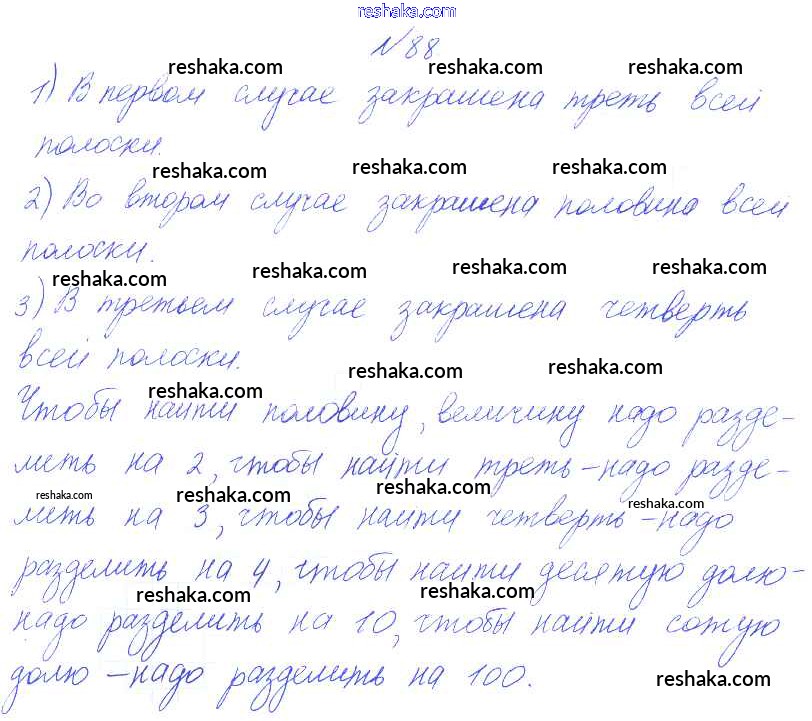 reshaka.com
№88.
reshaka.com reshaka.com reshaka.com
1) В первом случае закрашена треть всей
полоски.
reshaka.com reshaka.com reshaka.com
2) Во втором случае закрашена половина всей
полоски.
reshaka.com reshaka.com reshaka.com reshaka.com
3) В третьем случае закрашена четверть
всей полоски.
reshaka.com reshaka.com reshaka.com
Чтобы найти половину, величину надо разде-
лить на 2, чтобы найти треть – надо разде-
reshaka.com reshaka.com reshaka.com reshaka.com
лить на 3, чтобы найти четверть – надо
разделить на 4, чтобы найти десятую долю –
reshaka.com reshaka.com
надо разделить на 10, чтобы найти сотую
долю – надо разделить на 100.
reshaka.com